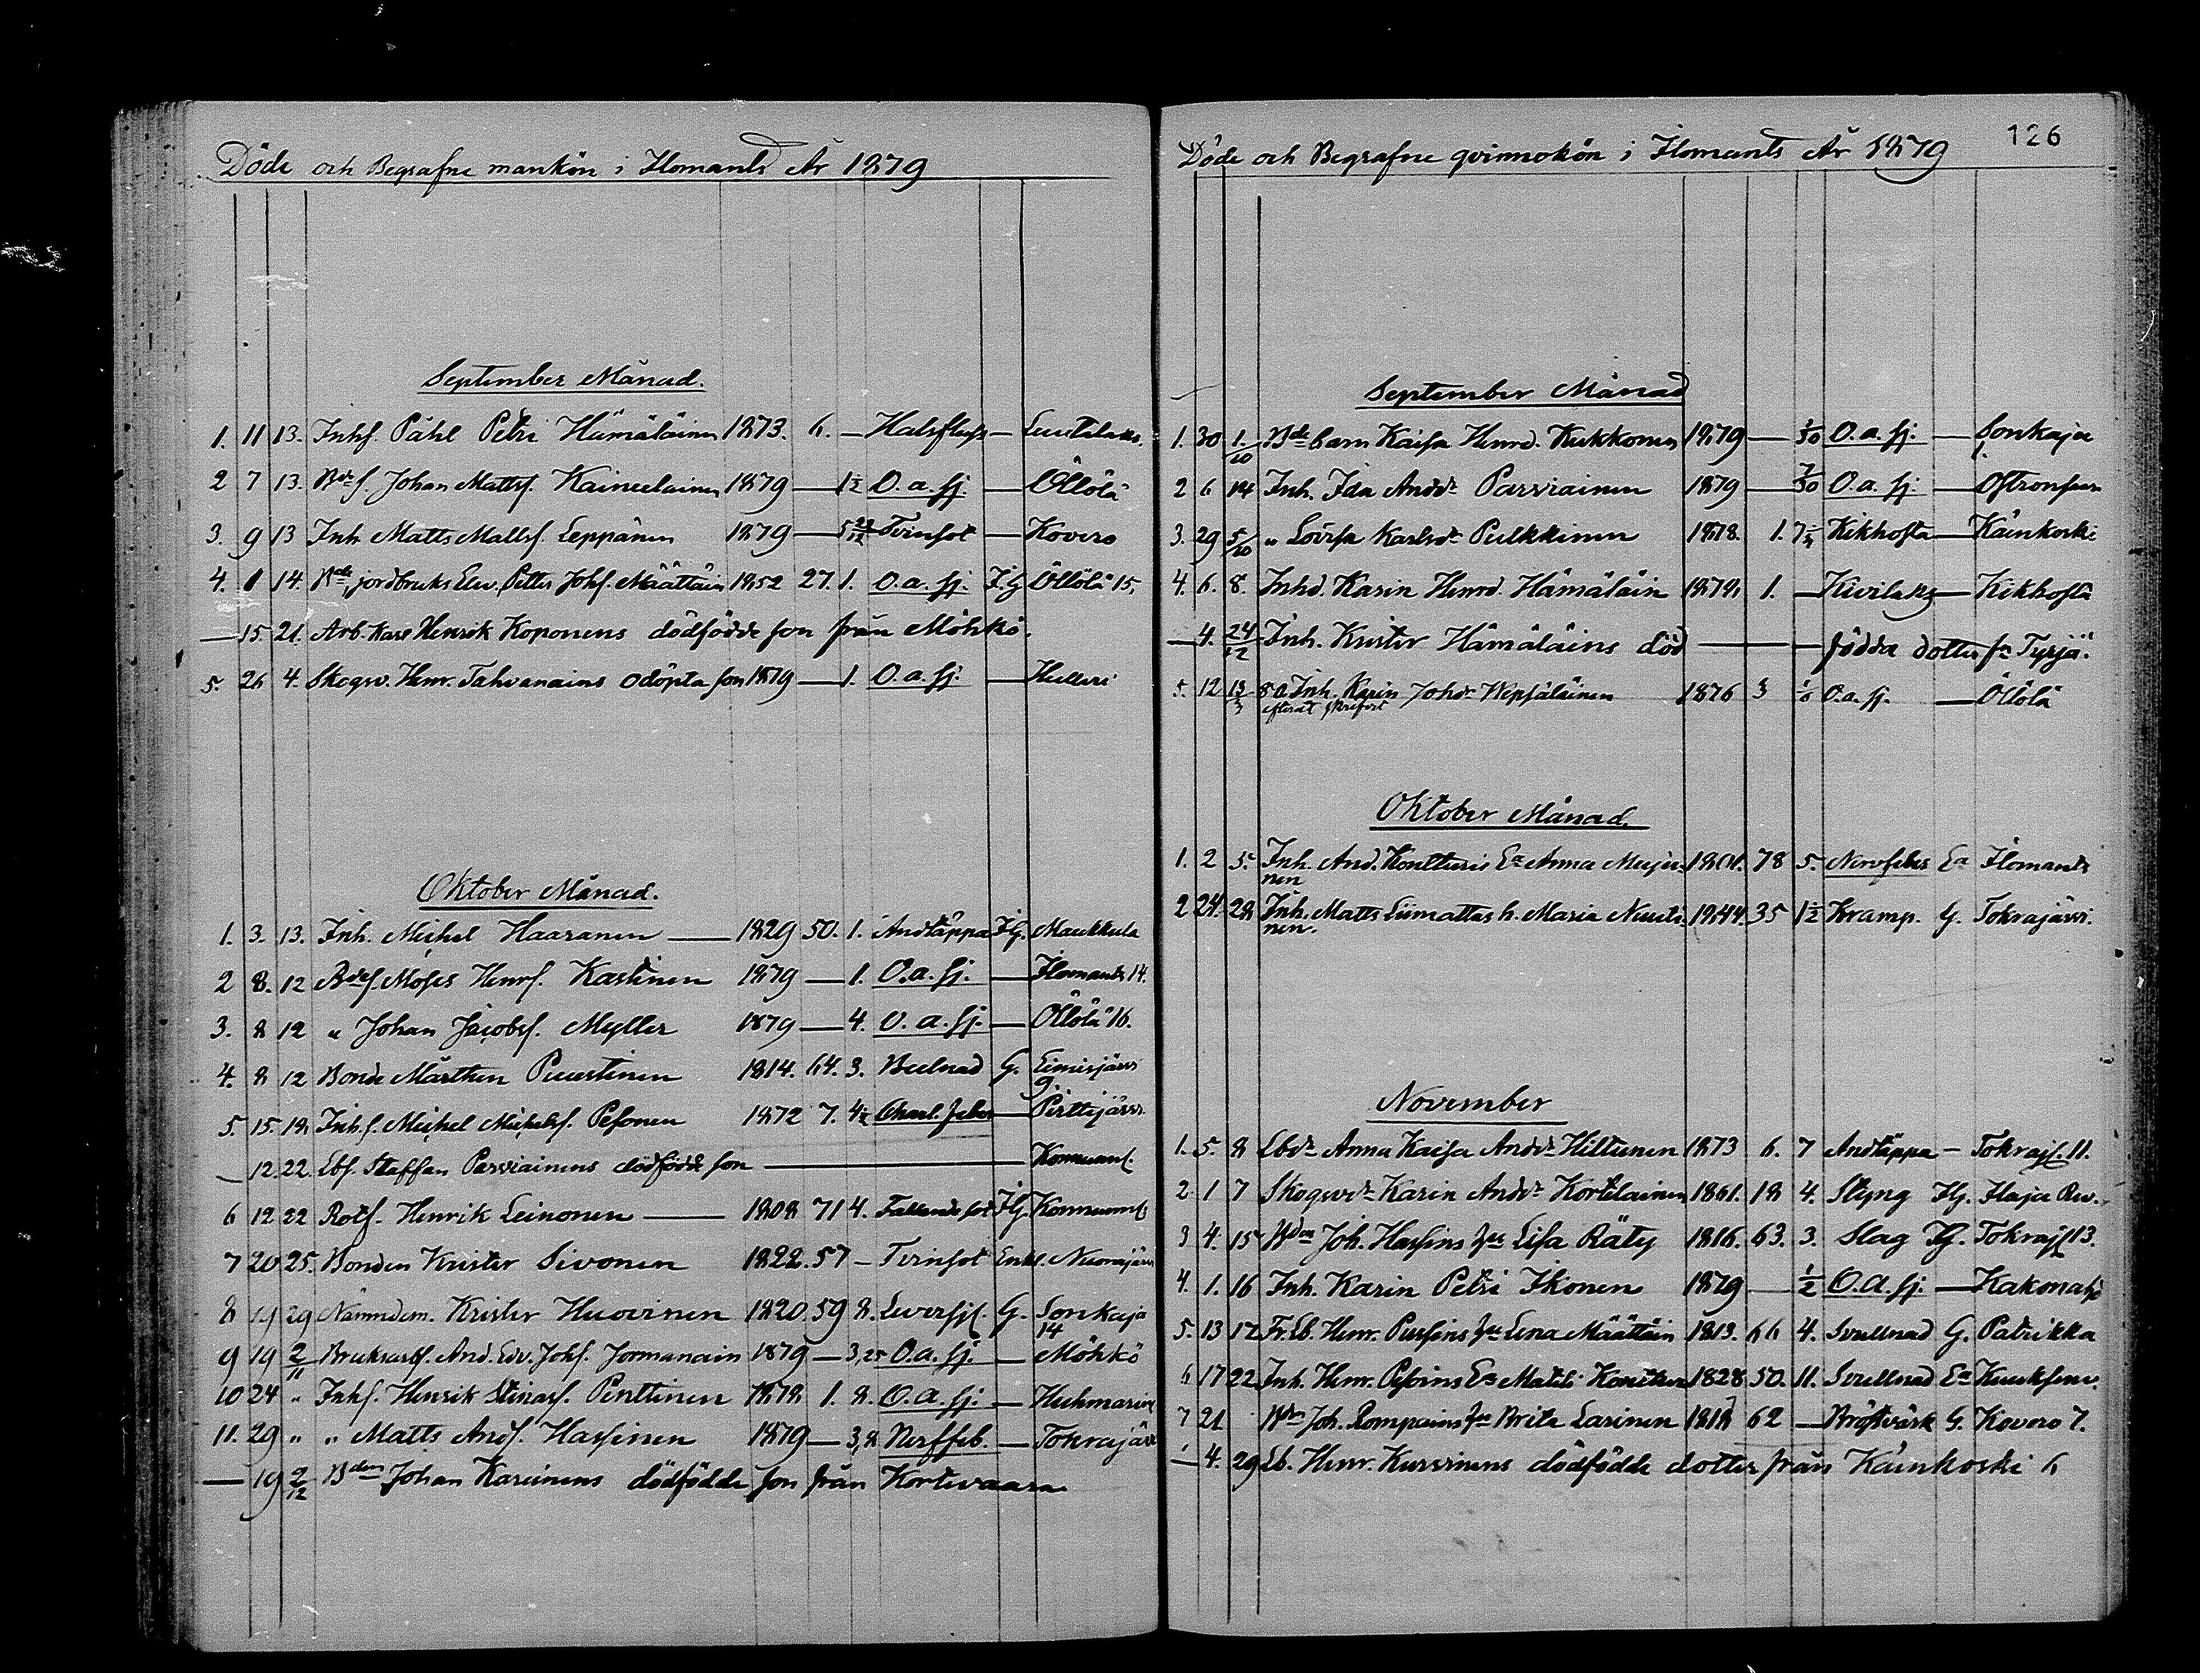 Döde och Begrafne mankön i Ilomants År 1879
September Månad.
1. 11 13. Inhs. Påhl Petri Hämäläinen 1873. 6. — Halsfluss —
2 7 13. Bdes. Johan Mattss. Kainulainen 1879 — 1½ O. a. sj. — Öllölä
3. 9 13 Inh. Matts Mattss. Leppänen 1879 — Tvinsot — Kovero
4. 1 14. jordbruks Elev. Petter Johs. Määttäin 1852 27. 1. O. a. sj. Ig Öllölä 15,
— 15. 21. Arb. Karl Henrik Koponens dödfödde son från Möhkö.
5. 26 4. Skogsv. Henr. Tahvanains odöpta son 1879 — 1. O. a. sj. — Hulleri
Oktober Månad.
1. 3. 13. Inh. Michel Haaranen — 1829 50. 1. Andtäppa Ig. Maukkula
2 8. 12 Bdes. Moses Henrs. Karttinen 1879 — 1. O. a. sj. — Ilomants 14.
3. 8 12 " Johan Jacobs. Myller 1879 — 4. O. a. sj. — Öllölä 16.
4. 8 12 Bonde Mårthen Puustinen 1814. 64. 3. Bulnad G. Liimisjärvi 9
5. 15. 18 Inh.s. Michel Michelss. Pesonen 1872 7. 4½ — Pirttijärvi.
— 12. 22. Lbs. Staffan Parviainens dödfödde son —
6 12 22 Rots. Henrik Leinonen — 1808 71 4. Fallandesot Ig.
7 20 25. Bonden Krister Sivonen 1822. 57 — Tvinsot Enkl. Nuorajärvi
8 19 29 Nämndem. Krister Huovinen 1820. 59 8. Leversj. G. Sonkaja 14
9 19 2/11 Bruksarb. And. Edv. Johs. Jormanain 1879 — 3,25 O. a. sj. — Möhkö
10 24 " Inhs. Henrik Stinas. Penttinen 1878 1. 8. O. a. sj. — Huhmarivr
11. 29 " " Matts Ands. Hassinen 1879 — 3,8 Nerffeb. — Tokrajärv
— 19 2/12 Bden Johan Kareinens dödfödde son från Kortevaara
126
Döde och Begrafne qvinnokön i Ilomants År 1879
September Månad
1. 30 1./10 Bde barn Kaisa Henrd. Kukkonen 1879 — 1/30 O. a. sj. — Sonkaja
2 6 14 Inh. Ida Anddr Parviainen 1879 — 7/30 O. a. sj. —
3. 29 5/10 " Lovisa Karlsdr Pulkkinen 1878. 1. Kikhosta — Känkoski
4. 6. 8. Inhd. Karin Henrd. Hämäläin 1878 1. — Kivilaks — Kikhosta
— 4. 24/12 Inh. Krister Hämäläins död — — födda dotter fr. Tyrjä.
5. 12 13 Inh. Karin Johdr Wepsäläinen 1876 3 O. a. sj. — Öllölä
Oktober Månad.
1. 2 5. Inh. And. Kontturis Ea Anna Muju-nen 1801. 78 5. Nervfeber Ea Ilomants
2 24. 28 Inh. Matts Liimattas h. Maria Nuuti-nen. 1844. 35 1½ Kramp. G. Tokrajärvi.
November
1. 5. 8 Lbdr Anna Kaisa Anddr Hiltunen 1873 6. 7 Andtäppa — Tokrajs. 11.
2 1 7 Skogsvdr Karin Anddr Kortelainen 1861. 18 4. Styng Ig. Ilaja Rev.
3 4. 15 Bden Joh. Hassins hu Lisa Räty 1816. 63. 3. Slag G. Tokrajs 13.
4. 1. 16 Inh. Karin Petri Ikonen 1879 — ½ O. a. sj. —
5. 13 17 Fr. Lb. Henr. Pussins hu Lena Määttäin 1813. 66 4. Svullnad G. Patrikka
6 17 22. Inh. Henr. Pesoins Ea Matili 1828 50. 11. Svullnad Ea
7 21 Bden Joh. Romppains hu Brita Larinen 62 — Bröstvärk G. Kovero 7.
— 4. 29 Lb. Henr. Kurvinens dödfödde dotter från Känkoski 6